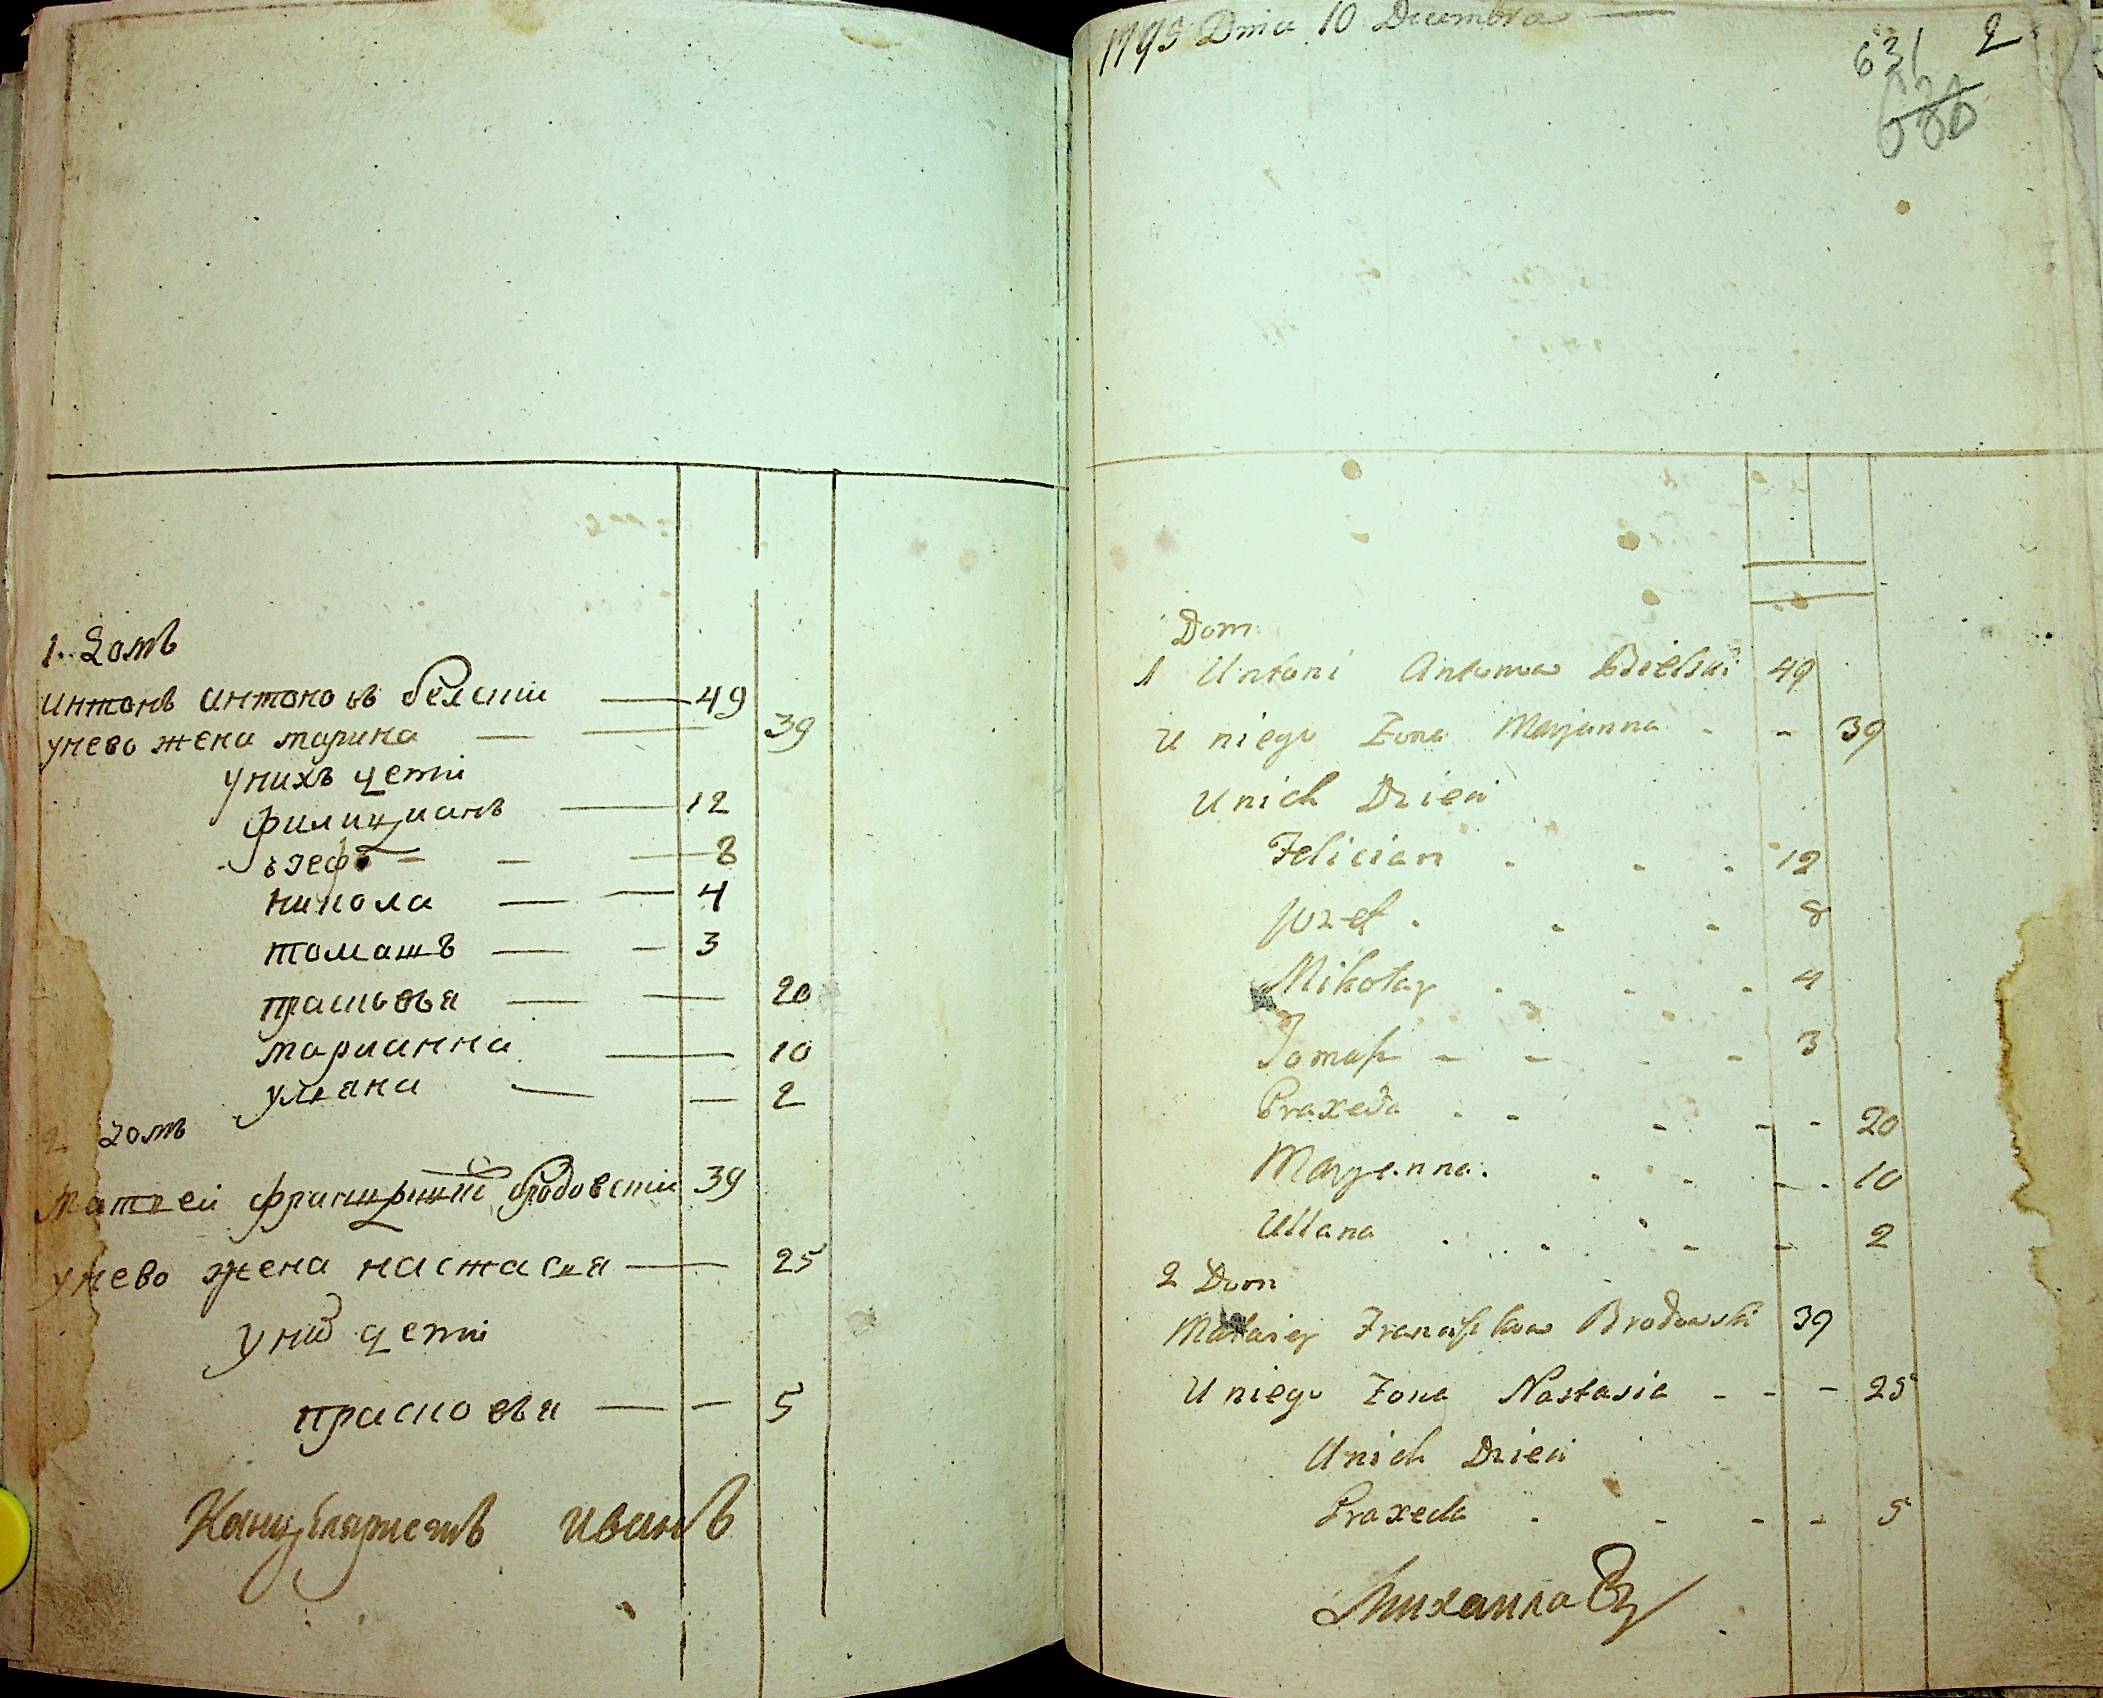 1. Домъ
Антонъ Антоновъ белский — 49
унево жена марина — — 39
унихъ дети
Филициянъ — 12
ъзефъ — — — 8
никола — — 4
томашъ — — 3
прасковья — — 20
марианна — 10
уляна — — 2
2 домъ
Матвей францишков бродовский 39
унево жена настасия — 25
уних дети
прасковья — — 5
Канцеляристъ иванъ
1795 Dnia 10 Decembra —
631 2
630
Dom
1 Antoni Antonow Bielski 49
U niego Zona Maryanna - - 39
U nich Dzieci
Felician . . . 12
Jozef . . . 8
Mikołay . . . 4
Tomasz - - - - 3
Praxeda . - - - - 20
Maryanna . . . - - . 10
Ullana . . . - - 2
2 Dom
Mataiey Franciszkow Brodowski 39
U niego Zona Nastasia - - - 25
U nich Dzieci
Praxeda . - - - 5
Михаила